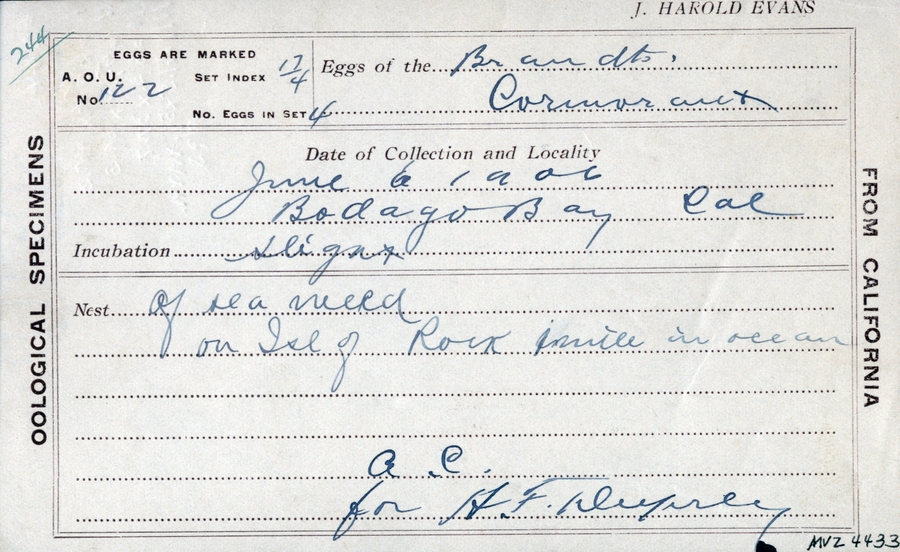 J. HAROLD EVANS
244
EGGS ARE MARKED
A. O. U. No. 122
SET INDEX 17/4
No. EGGS IN SET 4
Eggs of the Brandts.
Cormorant
Date of Collection and Locality
June 6 1906
Bodago Bay Cal
Incubation slight
Nest of sea weed
on Isl of Rock mile in ocean
A. C.
for H. F.
OOLOGICAL SPECIMENS
FROM CALIFORNIA
MVZ 4433